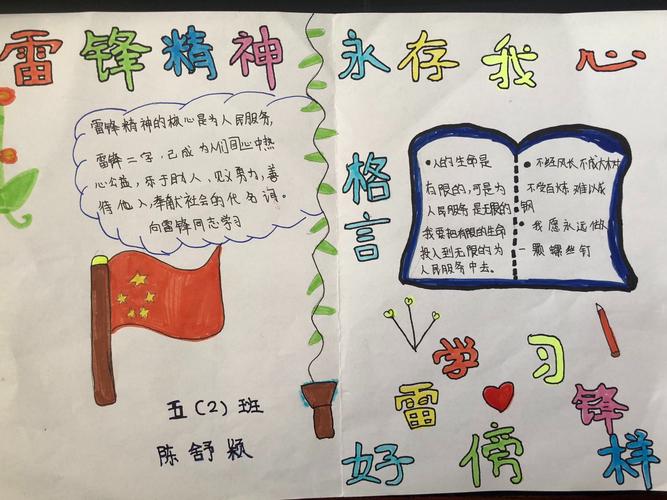 雷锋精神 永存我心
雷锋精神的核心是为人民服务,
雷锋二字,已成为人们心中热
心公益,乐于助人、见义勇为,善
待他人,奉献社会的代名词。
向雷锋同志学习
五(2)班
陈舒颖
格言
•人的生命是
有限的,可是为
人民服务是无限的
我要把有限的生命
投入到无限的为
人民服务中去。
• 不经风长不成大树
不受百炼难以成
钢
• 我愿永远做
一颗螺丝钉
学习
雷锋
好傍样